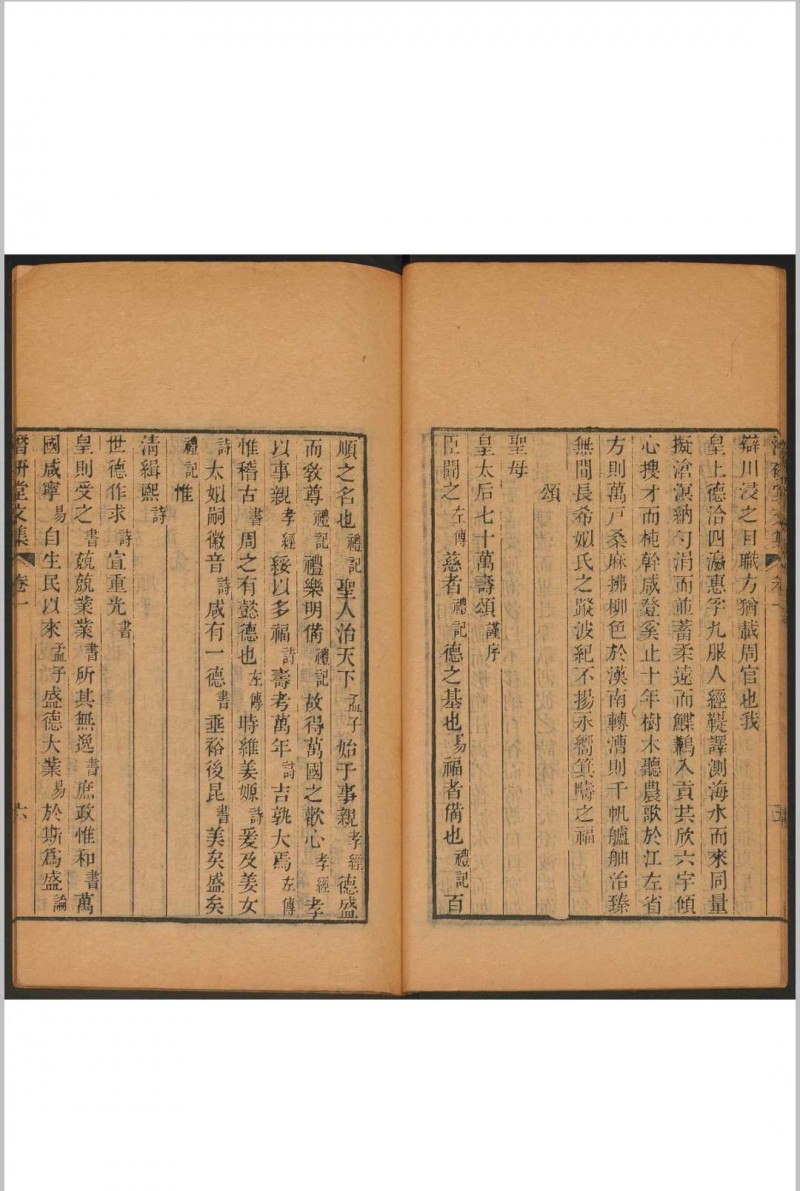 辯川浸之目職方猶載周官也我
皇上德洽四瀛惠孚九服人經鞮譯測海水而來同量
擬滄溟納勺涓而並蓄柔遠而鰈鶼入貢共欣六宇傾
心搜才而杶幹咸登奚止十年樹木聽農歌於江左省
方則萬戸桑麻拂柳色於漢南轉漕則千帆艫舳治臻
無間長希姒氏之蹤波紀不揚永嚮箕疇之福
頌
聖母
皇太后七十萬壽頌謹序
臣聞之左傳慈者禮記德之基也易福者備也禮記百
順之名也禮記聖人治天下孟子始于事親孝經德盛
而敎尊禮記禮樂明備禮記故得萬國之歡心孝經孝
以事親孝經綏以多福詩壽考萬年詩吉孰大焉左傳
惟稽古書周之有懿德也左傳時維姜嫄詩爰及姜女
詩太姒嗣徽音詩咸有一德書垂裕後昆書美矣盛矣
禮記惟
淸緝熙詩
世德作求詩宣重光書
皇則受之書兢兢業業書所其無逸書庶政惟和書萬
國咸寧易自生民以來孟子盛德大業易於斯爲盛論
潛研堂文集 卷一 六